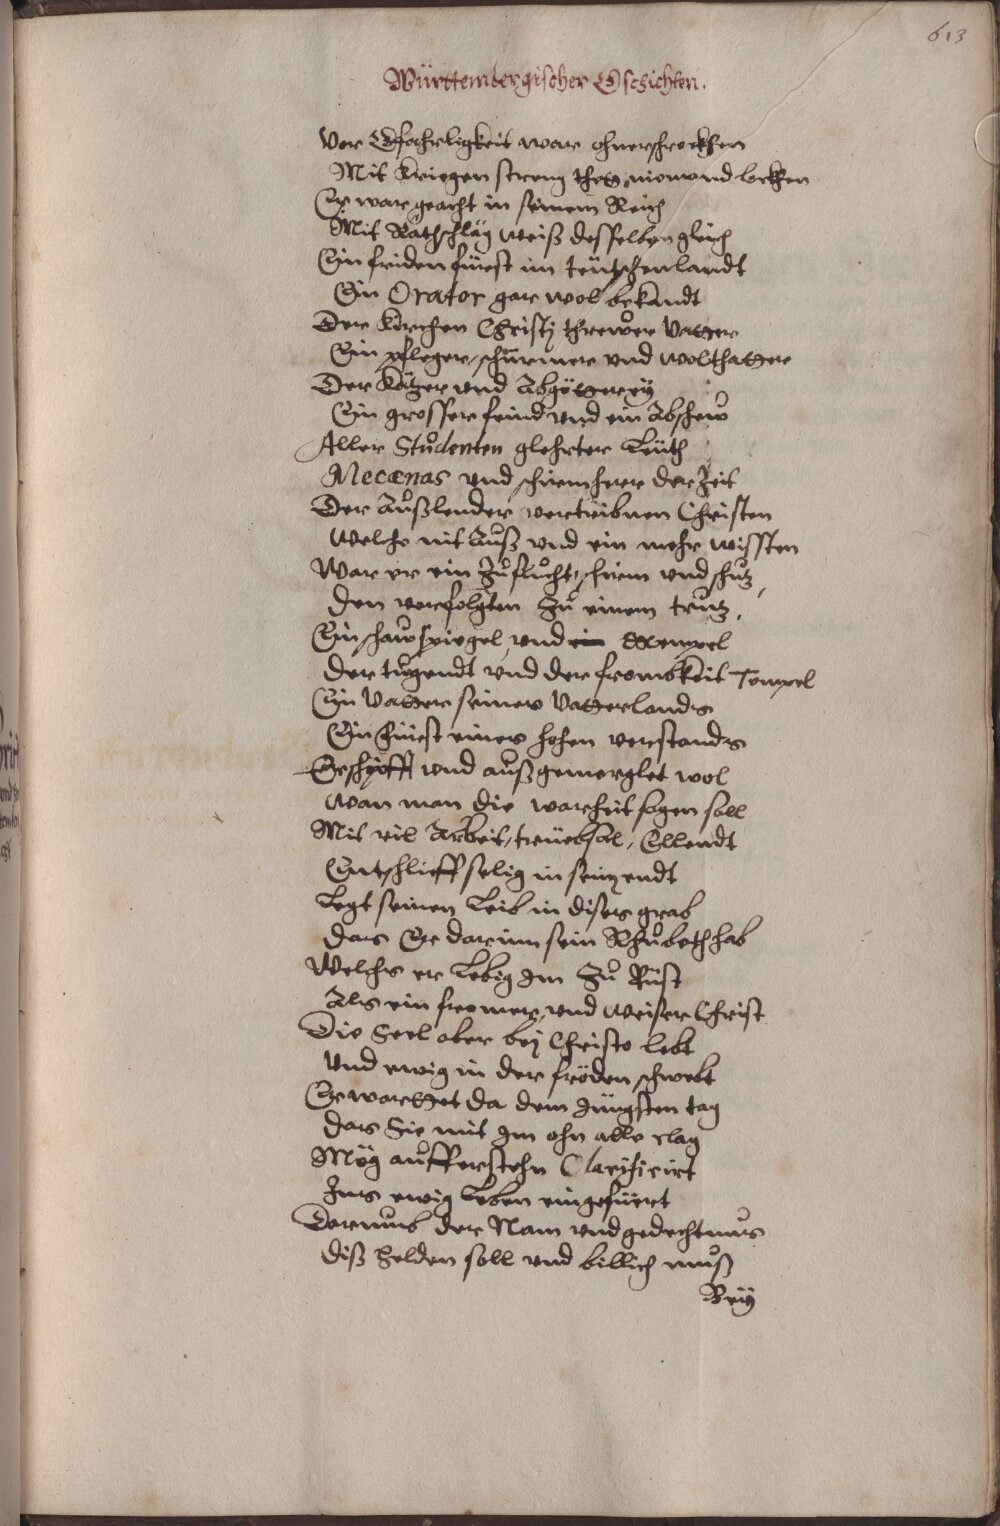 613
Württembergischer Gschichten.
Vor Gfahrligkeit war ohnerschrockhen
Mit Kriegen streng thet niemand lockhen
Er war geacht in seinem Reich
Mit Rathschläg weiß desselben gleich
Ein friden fürst im teütschenlandt
Ein Orator gar wol bekandt
Der Kirchen Christj threwer Vatter
Ein pfleger, schürmer und wolthatter
Der Kätzer und Abgötterey
Ein grosser feind und ein Abschew
Aller Studenten glehrter Leüth
Mecœnas und schirmherr der Zeit
Der Außlender vertribnen Christen
Welche nit Auß und ein mehr wissten
War er ein Zuflucht, schirm und schutz,
Den verfolgten Zu einem trutz,
Ein schawspiegel und ein Exempel
Der tugendt und der frombkeit Tempel
Ein Vatter seines Vatterlands
Ein Fürst eines hohen verstands
Erschöpfft und außgemerglet wol
wan man die warheit sagen soll
Mit vil Arbeit, trüebsal, Ellendt
Entschlieff selig in seim endt
Legt seinen Leib in dises grab
Das Er darinn sein Rhubethhab
Welches er Lebig Im Zu Rüst
Als ein fromer und weiser Christ
Die Seel aber bey Christo lebt
Und ewig in der fröden schwebt
Erwarttet da dem Jüngsten tag
Das Sie mit Im ohn alle clag
Mög aufferstehn Clarificirt
Ins ewig Leben eingefüert
Darumb der Nam und gedechtnus
Diß Helden soll und billich muß
Bey